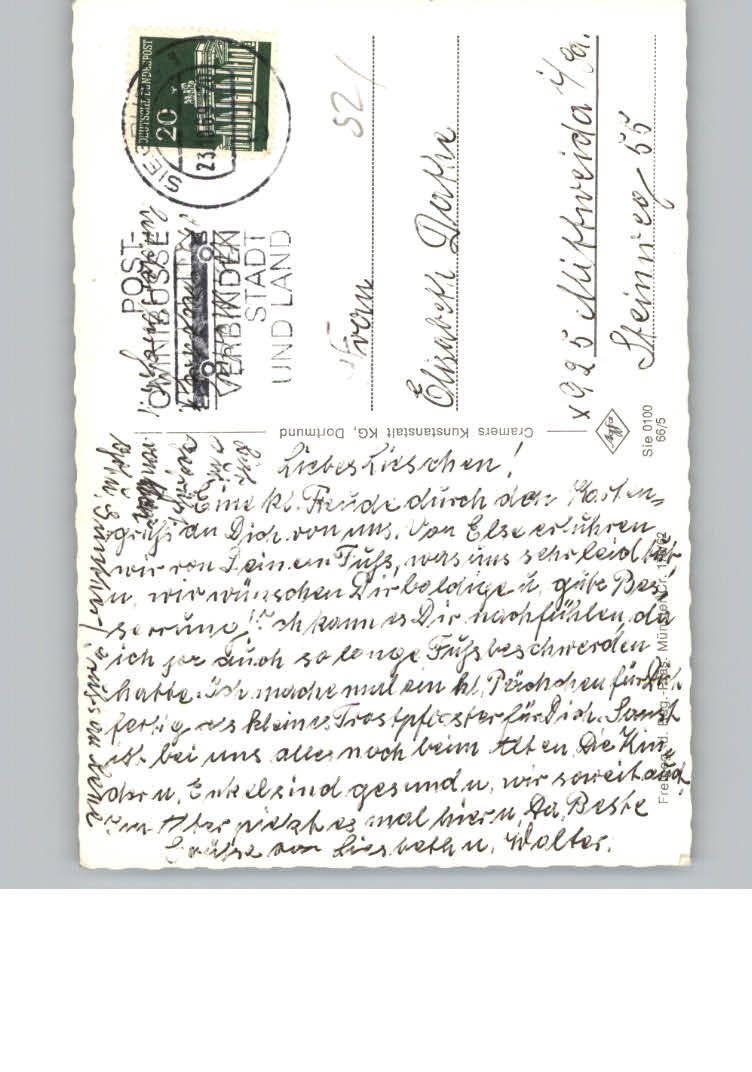 Liebes Lieschen!
Eine kl. Freude durch den Karten=
gruß an Dich von uns. Von Else erfuhren
wir von Deinem Fuß, was uns sehr leid tut
u. wir wünschen Dir baldige u. gute Bes=
serung! Ich kann es Dir nachfühlen, da
ich ja auch so lange Fußbeschwerden
hatte. Ich mache mal ein kl. Päckchen für Dich
fertig als kleines Trostpflaster für Dich. Sonst
ist bei uns alles noch beim Alten. Die Kin=
der u. Enkel sind gesund u. wir soweit auch
Im Alter piekt es mal hier u. da. Beste
Grüße von Liesbeth u. Walter.
Frau
Elisabeth Dathe
x925 Mittweida i/Sa.
Steinweg 55
52/
DEUTSCHE BUNDESPOST
20
SIEGBURG
POST-
OMNIBUSSE
VERBINDEN
STADT
UND LAND
Cramers Kunstanstalt KG, Dortmund
Sie 0100
66/5